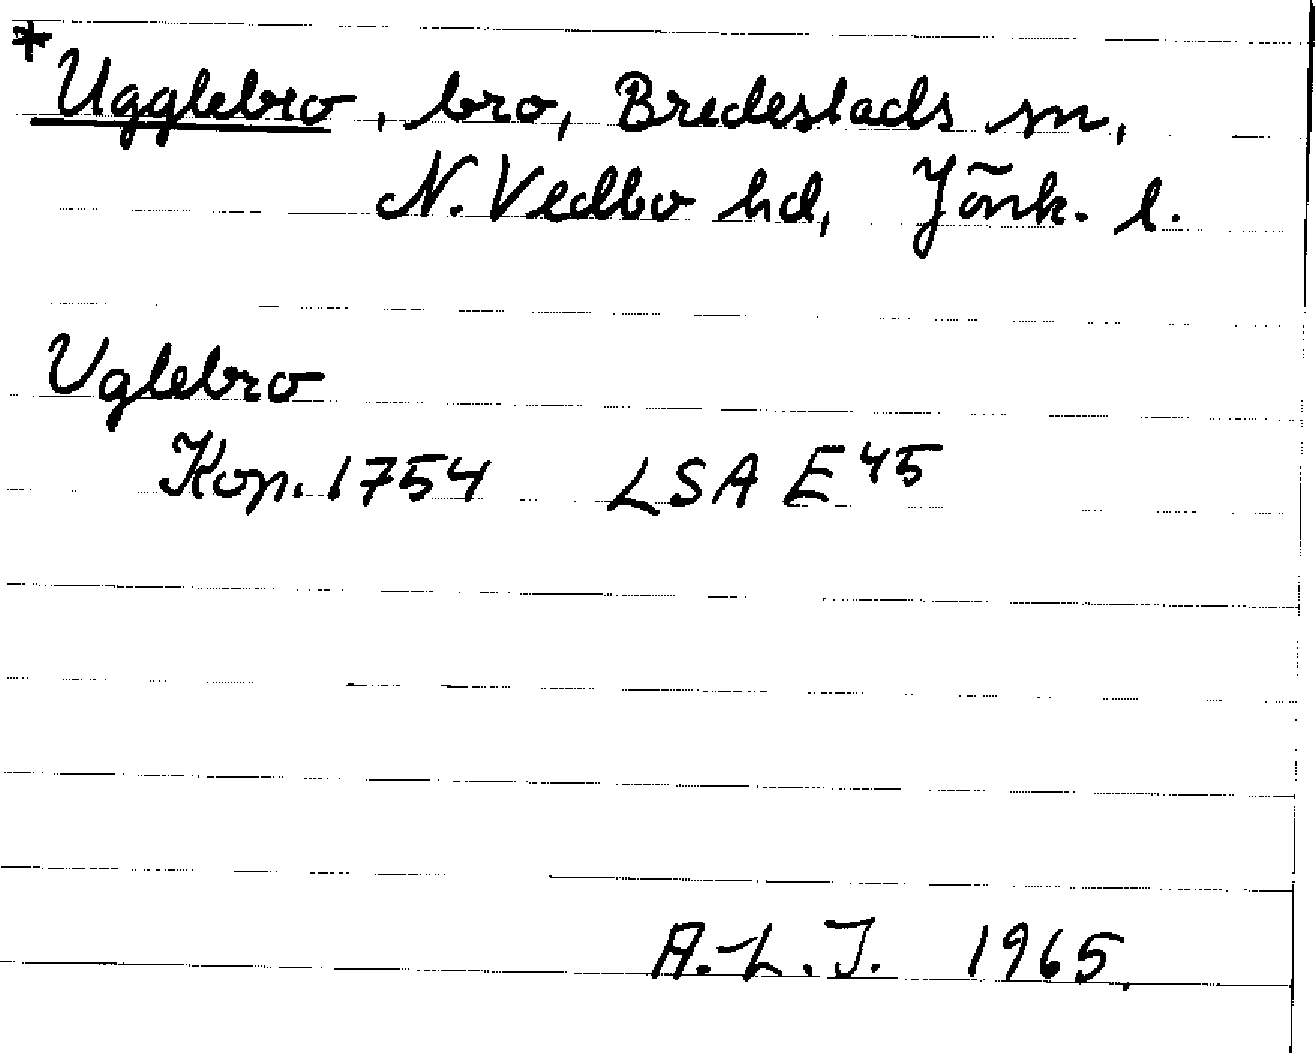 *Ugglebro, bro, Bredestads sn,
N. Vedbo hd, Jönk. l.
Uglebro
Kop. 1754 LSA E 45
A.-L. J. 1965.